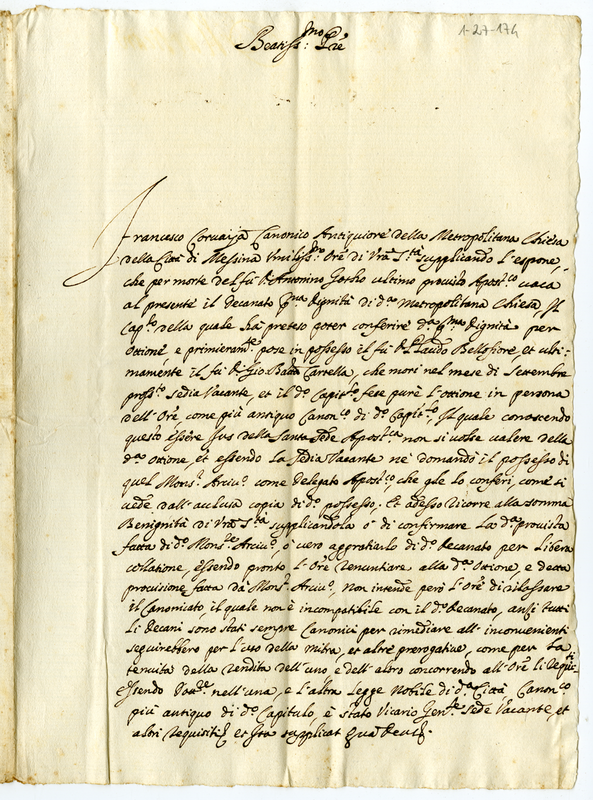 1-27-174
Beatiss.mo Pre
Francesco Corvaja Canonico Antiquiore della Metropolitana Chiesa
della Città di Messina Umiliss.mo Ore di Vra S.tà supplicando l'espone,
che per morte del fù D. Antonino Gotho ultimo provisto Apost.co vaca
al presente il Decanato p.ma Dignità di d.a Metropolitana Chiesa, Il
Cap.lo della quale hà preteso poter conferire d.a p.ma Dignità per
Ottione, e primieram.te pose in possesso il fù D. Placido Bellofiore, et ulti-
mamente il fù D. Gio Batta Cartella, che morì nel mese di Settembre
pross.o Sedia Vacante, et il d.o Capit.lo fece purè l'Ottione in persona
dell'Ore, come più antiquo Canon.co di d.o Capit.lo, Il quale conoscendo
questo essere Jus della Santa Sede Apost.ca non si volse valere della
d.a Ottione, et essendo la Sedia Vacante ne domandò il possesso di
quel Mons.r Arciv.o come delegato Apost.co, che gle lo conferì, come si
vede dall'acclusa copia di d.o possesso, Et adesso ricorre alla somma
Benignità di Vra S.tà supplicandola ò di confirmare la d.a provista
fatta di d.o Mons.re Arciv.o, ò vero aggratiarlo di d.o Decanato per libera
collatione, essendo pronto l'Ore renuntiare alla d.a Ottione, e detta
provisione fatta dà Mons.r Arciv.o, Non intende però l'Ore di rilassare
il Canonicato, il quale non è incompatibile con il d.o Decanato, anzi tutti
li Decani sono stati sempre Canonici per rimediare all'inconvenienti
seguirebbero per l'uso della mitra, et altre prerogative, come per la
tenuità della rendita dell'uno e dell'altro concorrendo all'Ore li requisiti
essendo nell'una, e l'altra legge Nobile di d.a Città, Canon.co
più antiquo di d.o Capitulo, è stato Vicario Gen.le Sede Vacante, et
altri requisiti, et Ita supplicat